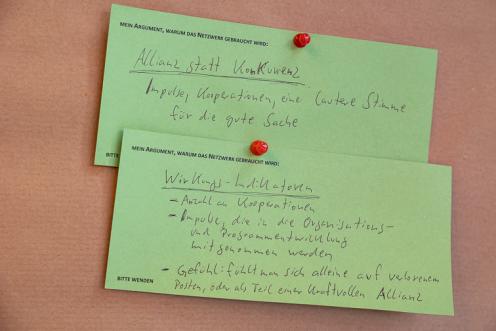 MEIN ARGUMENT, WARUM DAS NETZWERK GEBRAUCHT WIRD:
Allianz statt Konkurrenz
Impulse, Kooperationen, eine lautere Stimme
für die gute Sache
BITTE
MEIN ARGUMENT, WARUM DAS NETZWERK GEBRAUCHT WIRD:
Wirkungs-Indikatoren
- Anzahl an Kooperationen
- Impulse, die in die Organisations-
und Programmentwicklung
mitgenommen werden
- Gefühl: fühlt man sich alleine auf verlorenem
Posten, oder als Teil einer kraftvollen Allianz
BITTE WENDEN